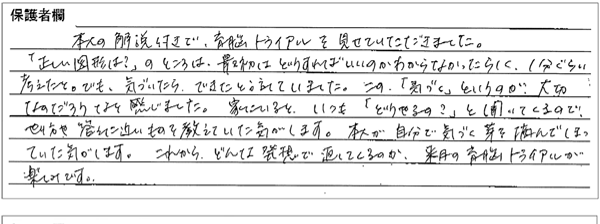 保護者欄
本人の解説付きで、育脳トライアルを見せていただきました。
「正しい図形は？」のところは、最初はどうすればいいのかわからなかったらしく、1分ぐらい
考えたと。でも、気づいたら、できたと言っていました。この、「気づく」というのが、大切
なのだろうなと感じました。家にいると、いつも「どうやるの？」と聞いてくるので、
せい方や答えに近いものを教えていた気がします。本人が自分で気づく芽を摘んでしまっ
ていた気がします。これから、どんな発想で返してくるのか、来月の育脳トライアルが
楽しみです。